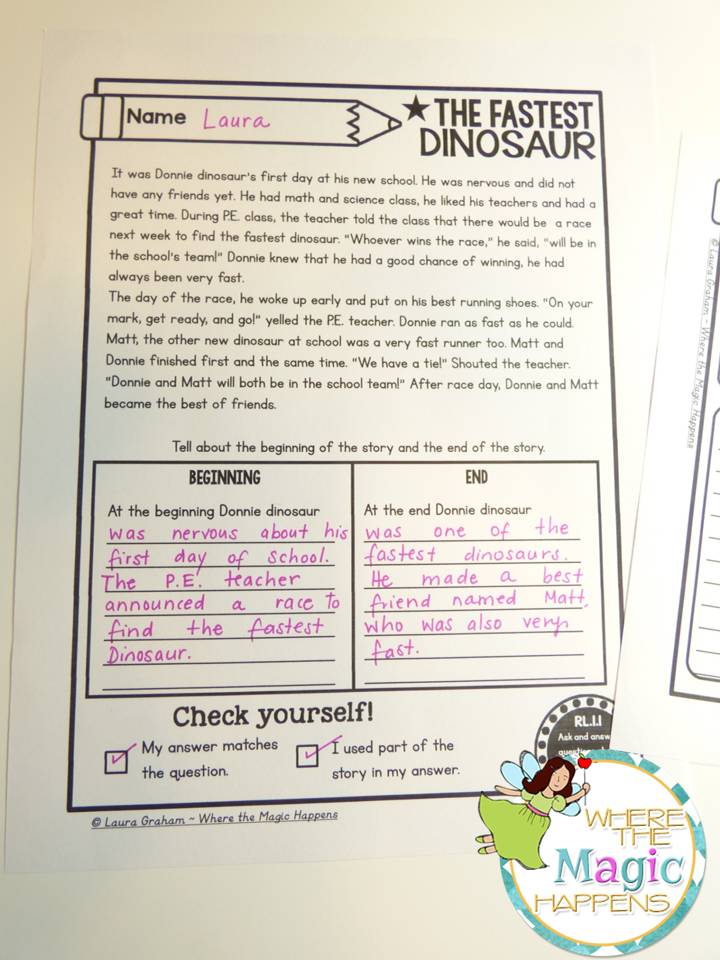 Name Laura
★ THE FASTEST
DINOSAUR
It was Donnie dinosaur's first day at his new school. He was nervous and did not
have any friends yet. He had math and science class, he liked his teachers and had a
great time. During P.E. class, the teacher told the class that there would be a race
next week to find the fastest dinosaur. "Whoever wins the race," he said, "will be in
the school's team!" Donnie knew that he had a good chance of winning, he had
always been very fast.
The day of the race, he woke up early and put on his best running shoes. "On your
mark, get ready, and go!" yelled the P.E. teacher. Donnie ran as fast as he could.
Matt, the other new dinosaur at school was a very fast runner too. Matt and
Donnie finished first and the same time. "We have a tie!" Shouted the teacher.
"Donnie and Matt will both be in the school team!" After race day, Donnie and Matt
became the best of friends.
Tell about the beginning of the story and the end of the story.
BEGINNING
At the beginning Donnie dinosaur
was nervous about his
first day of school.
The P.E. teacher
announced a race to
find the fastest
Dinosaur.
END
At the end Donnie dinosaur
was one of the
fastest dinosaurs.
He made a best
friend named Matt,
who was also very
fast.
Check yourself!
My answer matches
the question.
I used part of the
story in my answer.
RL.1.1
Ask and answ
© Laura Graham ~ Where the Magic Happens
© Laura Graham ~ Where the Magic Happens
WHERE
THE
Magic
HAPPENS